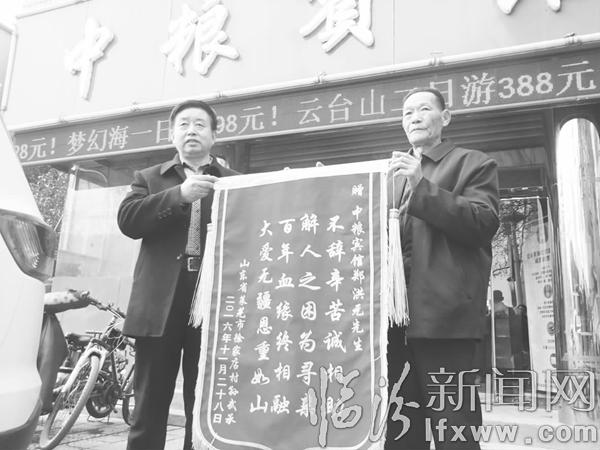 中粮賓
98元！梦幻海一日 98元！云台山一日游388元
赠 中粮宾馆郑洪光先生
不辞辛苦诚相助
解人之困为寻亲
百年血缘终相融
大爱无疆恩重如山
山东省莱芜市徐家店村孙武承
二〇一六年十一月二十八日
临汾新闻网
lfxww.com